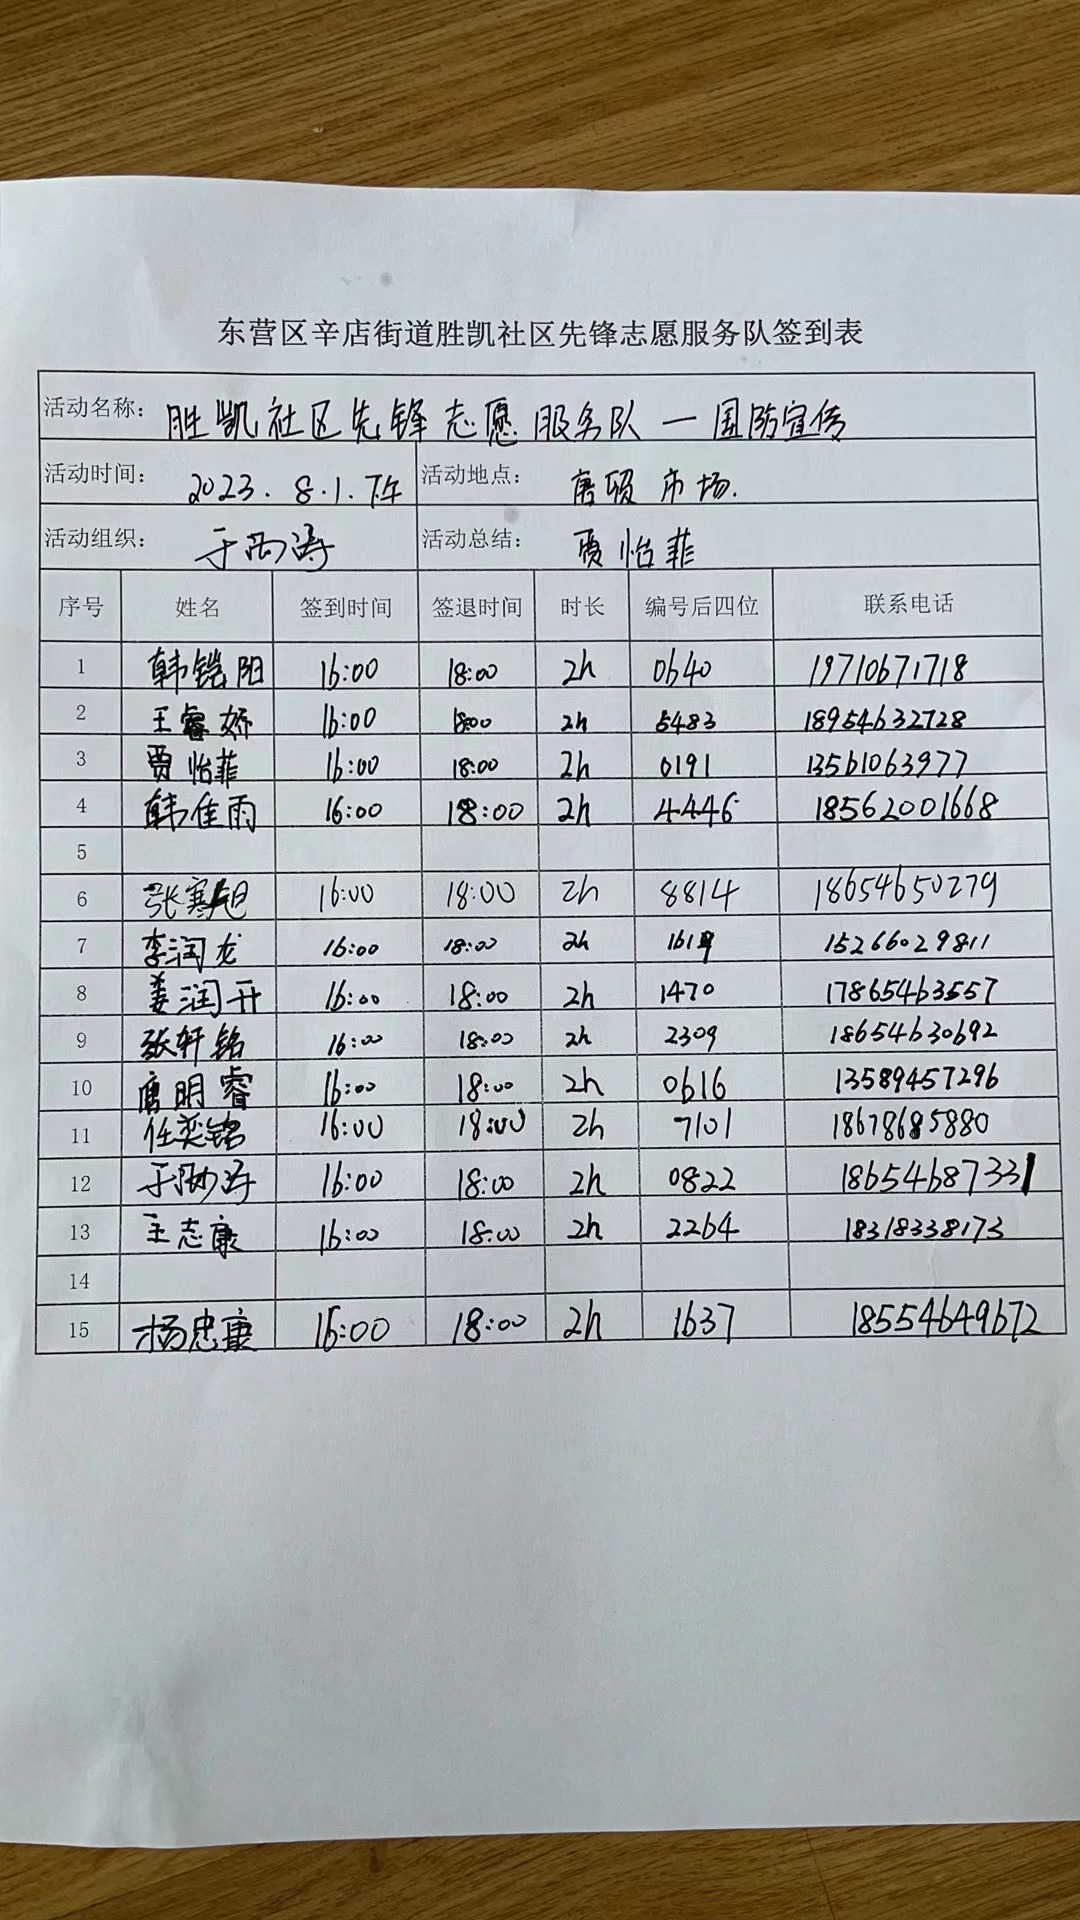 东营区辛店街道胜凯社区先锋志愿服务队签到表
活动名称: 胜凯社区先锋志愿服务队一国防宣传
活动时间: 2023.8.1.下午 活动地点: 唐 市场.
活动组织: 于 涛 活动总结: 贾怡菲
序号 姓名 签到时间 签退时间 时长 编号后四位 联系电话
1 韩铠阳 16:00 18:00 2h 0640 19710671718
2 王睿娇 16:00 18:00 2h 5483 18954632728
3 贾怡菲 16:00 18:00 2h 0191 13561063977
4 韩佳雨 16:00 18:00 2h 4446 18562001668
5
6 张寒旭 16:00 18:00 2h 8814 18654650279
7 李润龙 16:00 18:00 2h 15266029811
8 姜润开 16:00 18:00 2h 1470 17865463557
9 张轩铭 16:00 18:00 2h 2309 18654630692
10 唐明睿 16:00 18:00 2h 0616 13589457296
11 任奕铭 16:00 18:00 2h 7101 18678685880
12 于 涛 16:00 18:00 2h 0822 18654687331
13 王志康 16:00 18:00 2h 2264 18318338173
14
15 杨忠康 16:00 18:00 2h 1637 18554649672